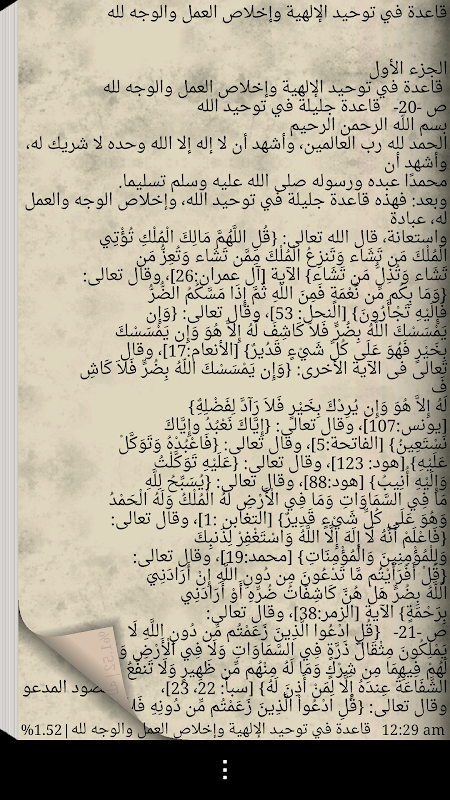 قاعدة في توحيد الإلهية وإخلاص العمل والوجه لله
الجزء الأول
قاعدة في توحيد الإلهية وإخلاص العمل والوجه لله
ص -20- قاعدة جليلة في توحيد الله
بسم الله الرحمن الرحيم
الحمد لله رب العالمين، وأشهد أن لا إله إلا الله وحده لا شريك له،
وأشهد أن
محمدًا عبده ورسوله صلى الله عليه وسلم تسليما.
وبعد: فهذه قاعدة جليلة في توحيد الله، وإخلاص الوجه والعمل
له، عبادة
واستعانة، قال الله تعالى: {قُلِ اللَّهُمَّ مَالِكَ الْمُلْكِ تُؤْتِي
الْمُلْكَ مَن تَشَاء وَتَنزِعُ الْمُلْكَ مِمَّن تَشَاء وَتُعِزُّ مَن
تَشَاء وَتُذِلُّ مَن تَشَاء} الآية [آل عمران:26]، وقال تعالى:
{وَمَا بِكُم مِّن نِّعْمَةٍ فَمِنَ اللّهِ ثُمَّ إِذَا مَسَّكُمُ الضُّرُّ
فَإِلَيْهِ تَجْأَرُونَ} [النحل: 53]، وقال تعالى: {وَإِن
يَمْسَسْكَ اللّهُ بِضُرٍّ فَلاَ كَاشِفَ لَهُ إِلاَّ هُوَ وَإِن يَمْسَسْكَ
بِخَيْرٍ فَهُوَ عَلَى كُلِّ شَيْءٍ قَدُيرٌ} [الأنعام:17]، وقال
تعالى فى الآية الأخرى: {وَإِن يَمْسَسْكَ اللّهُ بِضُرٍّ فَلاَ كَاشِ
فَ
لَهُ إِلاَّ هُوَ وَإِن يُرِدْكَ بِخَيْرٍ فَلاَ رَآدَّ لِفَضْلِهِ}
[يونس:107]، وقال تعالى: {إِيَّاكَ نَعْبُدُ وإِيَّاكَ
نَسْتَعِينُ} [الفاتحة:5]، وقال تعالى: {فَاعْبُدْهُ وَتَوَكَّلْ
عَلَيْهِ} [هود: 123]، وقال تعالى: {عَلَيْهِ تَوَكَّلْتُ
وَإِلَيْهِ أُنِيبُ} [هود:88]، وقال تعالى: {يُسَبِّحُ لِلَّهِ
مَا فِي السَّمَاوَاتِ وَمَا فِي الْأَرْضِ لَهُ الْمُلْكُ وَلَهُ الْحَمْدُ
وَهُوَ عَلَى كُلِّ شَيْءٍ قَدِيرٌ} [التغابن :1]، وقال تعالى:
{فَاعْلَمْ أَنَّهُ لَا إِلَهَ إِلَّا اللَّهُ وَاسْتَغْفِرْ لِذَنبِكَ
وَلِلْمُؤْمِنِينَ وَالْمُؤْمِنَاتِ} [محمد:19]، وقال تعالى:
{قُلْ أَفَرَأَيْتُم مَّا تَدْعُونَ مِن دُونِ اللَّهِ إِنْ أَرَادَنِيَ
اللَّهُ بِضُرٍّ هَلْ هُنَّ كَاشِفَاتُ ضُرِّهِ أَوْ أَرَادَنِي
بِرَحْمَةٍ} الآية [الزمر:38]، وقال تعالى:
ص -21- {قُلِ ادْعُوا الَّذِينَ زَعَمْتُم مِّن دُونِ اللَّهِ لَا
يَمْلِكُونَ مِثْقَالَ ذَرَّةٍ فِي السَّمَاوَاتِ وَلَا فِي الْأَرْضِ وَ
لَهُمْ فِيهِمَا مِن شِرْكٍ وَمَا لَهُ مِنْهُم مِّن ظَهِيرٍ وَلَا تَنفَعُ
الشَّفَاعَةُ عِندَهُ إِلَّا لِمَنْ أَذِنَ لَهُ} [سبأ: 22، 23]، صود المدعو
وقال تعالى: {قُلِ ادْعُواْ الَّذِينَ زَعَمْتُم مِّن دُونِهِ فَلاَ
%1.52 | قاعدة في توحيد الإلهية وإخلاص العمل والوجه لله 12:29 am